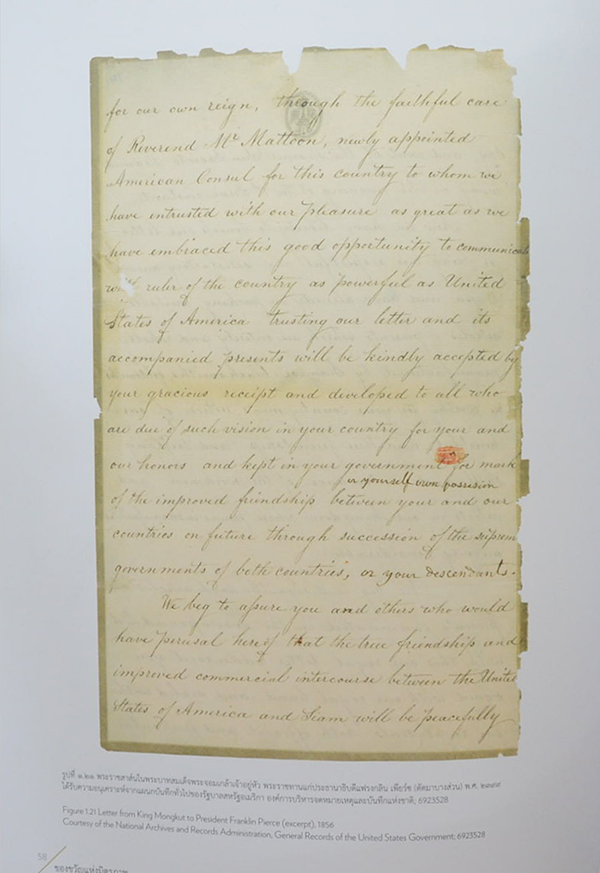 for our own reign, through the faithful care
of Reverend Mr Mattoon, newly appointed
American Consul for this country to whom we
have entrusted with our pleasure as great as we
have embraced this good opportunity to communicate
with ruler of the country as powerful as United
States of America trusting our letter and its
accompanied presents will be kindly accepted by
your gracious receipt and developed to all who
are due of such vision in your country for your and
our honors and kept in your government for mark
or yourself own possesion
of the improved friendship between your and our
countries on future through succession of the suprem
governments of both countries, or your descendants.
We beg to assure you and others who would
have perusal hereof that the true friendship and
improved commercial intercourse between the United
States of America and Siam will be peacefully
รูปที่ ๑.๒๑ พระราชสาส์นในพระบาทสมเด็จพระจอมเกล้าเจ้าอยู่หัว พระราชทานแก่ประธานาธิบดีแฟรงกลิน เพียร์ซ (คัดมาบางส่วน) พ.ศ. ๒๓๙๙
ได้รับความอนุเคราะห์จากแผนกบันทึกทั่วไปของรัฐบาลสหรัฐอเมริกา องค์การบริหารจดหมายเหตุและบันทึกแห่งชาติ; 6923528
Figure 1.21 Letter from King Mongkut to President Franklin Pierce (excerpt), 1856
Courtesy of the National Archives and Records Administration, General Records of the United States Government; 6923528
58
ของขวัญแห่งมิตรภาพ